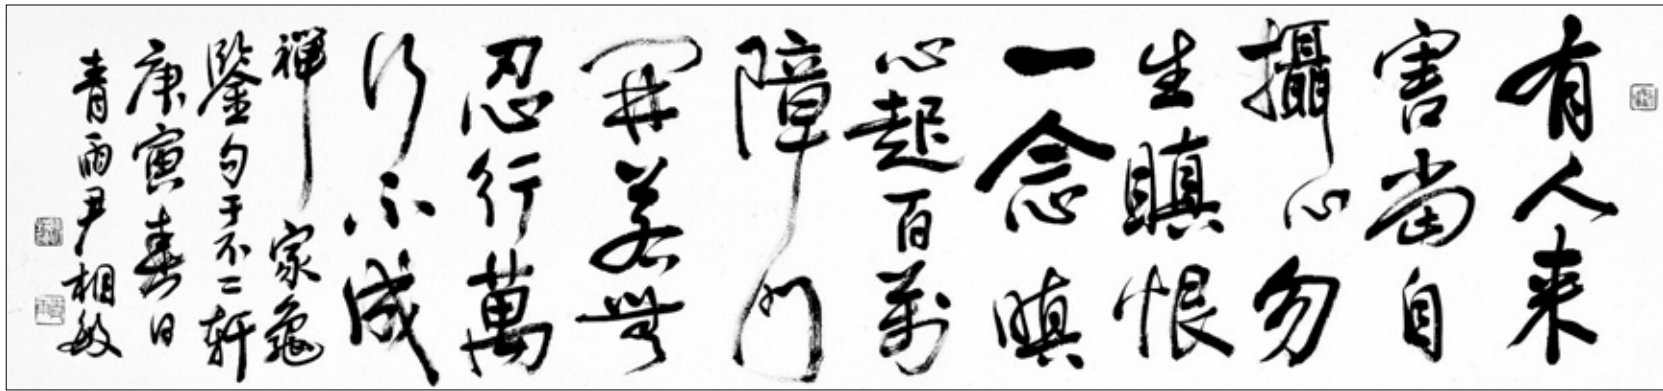 有人来
害當自
攝心勿
生瞋恨
一念瞋
心起百萬
障門
開若無
忍行萬
行不成
禪家龜
鑒句于不二軒
庚寅春日
青雨尹相敏